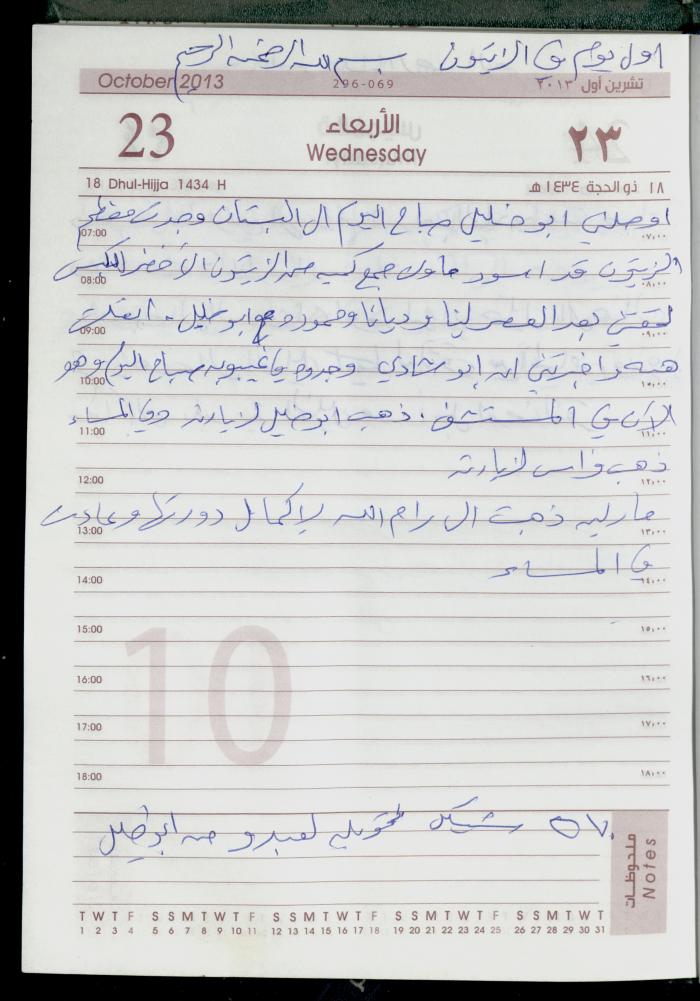 اول يوم في الزيتون بسم الله الرحمن الرحيم
October 2013 296-069 تشرين أول ٢٠١٣
23 الأربعاء ٢٣
Wednesday
18 Dhul-Hijja 1434 H ١٨ ذو الحجة ١٤٣٤ هـ
اوصلني ابو خليل صباح اليوم الى البستان وجدت معظم
07:00 ٠٧,٠٠
الزيتون قد اسود حاولت جمع كمية من الزيتون الأخضر للكبس
08:00 ٠٨,٠٠
لحقتني بعد العصر لينا و ديانا وحمودة مع ابو خليل.
09:00 ٠٩,٠٠
هبه واخبرتني ان ابو شادي وجدوه في غيبوبه صباح اليوم وهو
10:00 ١٠,٠٠
الآن في المستشفى. ذهب ابو خليل لزيارته وفي المساء
11:00 ١١,٠٠
ذهب فراس لزيارته
12:00 ١٢,٠٠
ماريه ذهبت الى رام الله لإكمال دورتها وعادت
13:00 ١٣,٠٠
في المساء
14:00 ١٤,٠٠
15:00 ١٥,٠٠
10
16:00 ١٦,٠٠
17:00 ١٧,٠٠
18:00 ١٨,٠٠
٥٧٠ شيكل لعبدو من ابو خليل
ملحوظات
Notes
T W T F S S M T W T F S S M T W T F S S M T W T F S S M T W T
1 2 3 4 5 6 7 8 9 10 11 12 13 14 15 16 17 18 19 20 21 22 23 24 25 26 27 28 29 30 31